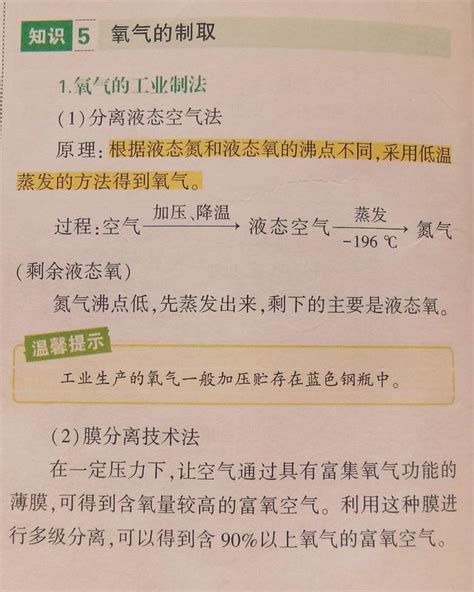 知识 5 氧气的制取
1.氧气的工业制法
(1)分离液态空气法
原理:根据液态氮和液态氧的沸点不同,采用低温
蒸发的方法得到氧气。
过程:空气 加压、降温 → 液态空气 蒸发 -196 ℃ → 氮气
(剩余液态氧)
氮气沸点低,先蒸发出来,剩下的主要是液态氧。
温馨提示
工业生产的氧气一般加压贮存在蓝色钢瓶中。
(2)膜分离技术法
在一定压力下,让空气通过具有富集氧气功能的
薄膜,可得到含氧量较高的富氧空气。利用这种膜进
行多级分离,可以得到含 90%以上氧气的富氧空气。